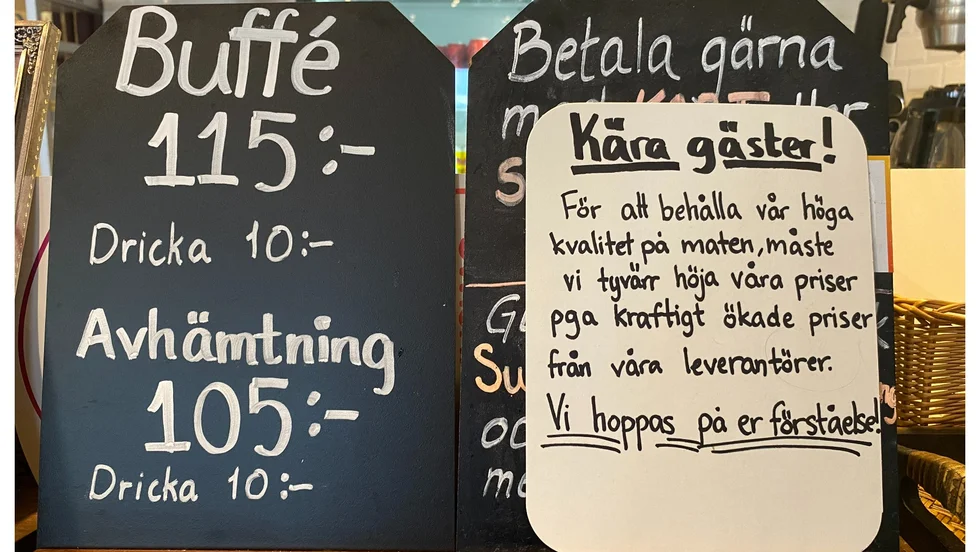 Buffé
115:-
Dricka 10:-
Avhämtning
105:-
Dricka 10:-
Betala gärna
Kära gäster!
För att behålla vår höga
kvalitet på maten, måste
vi tyvärr höja våra priser
pga kraftigt ökade priser
från våra leverantörer.
Vi hoppas på er förståelse!